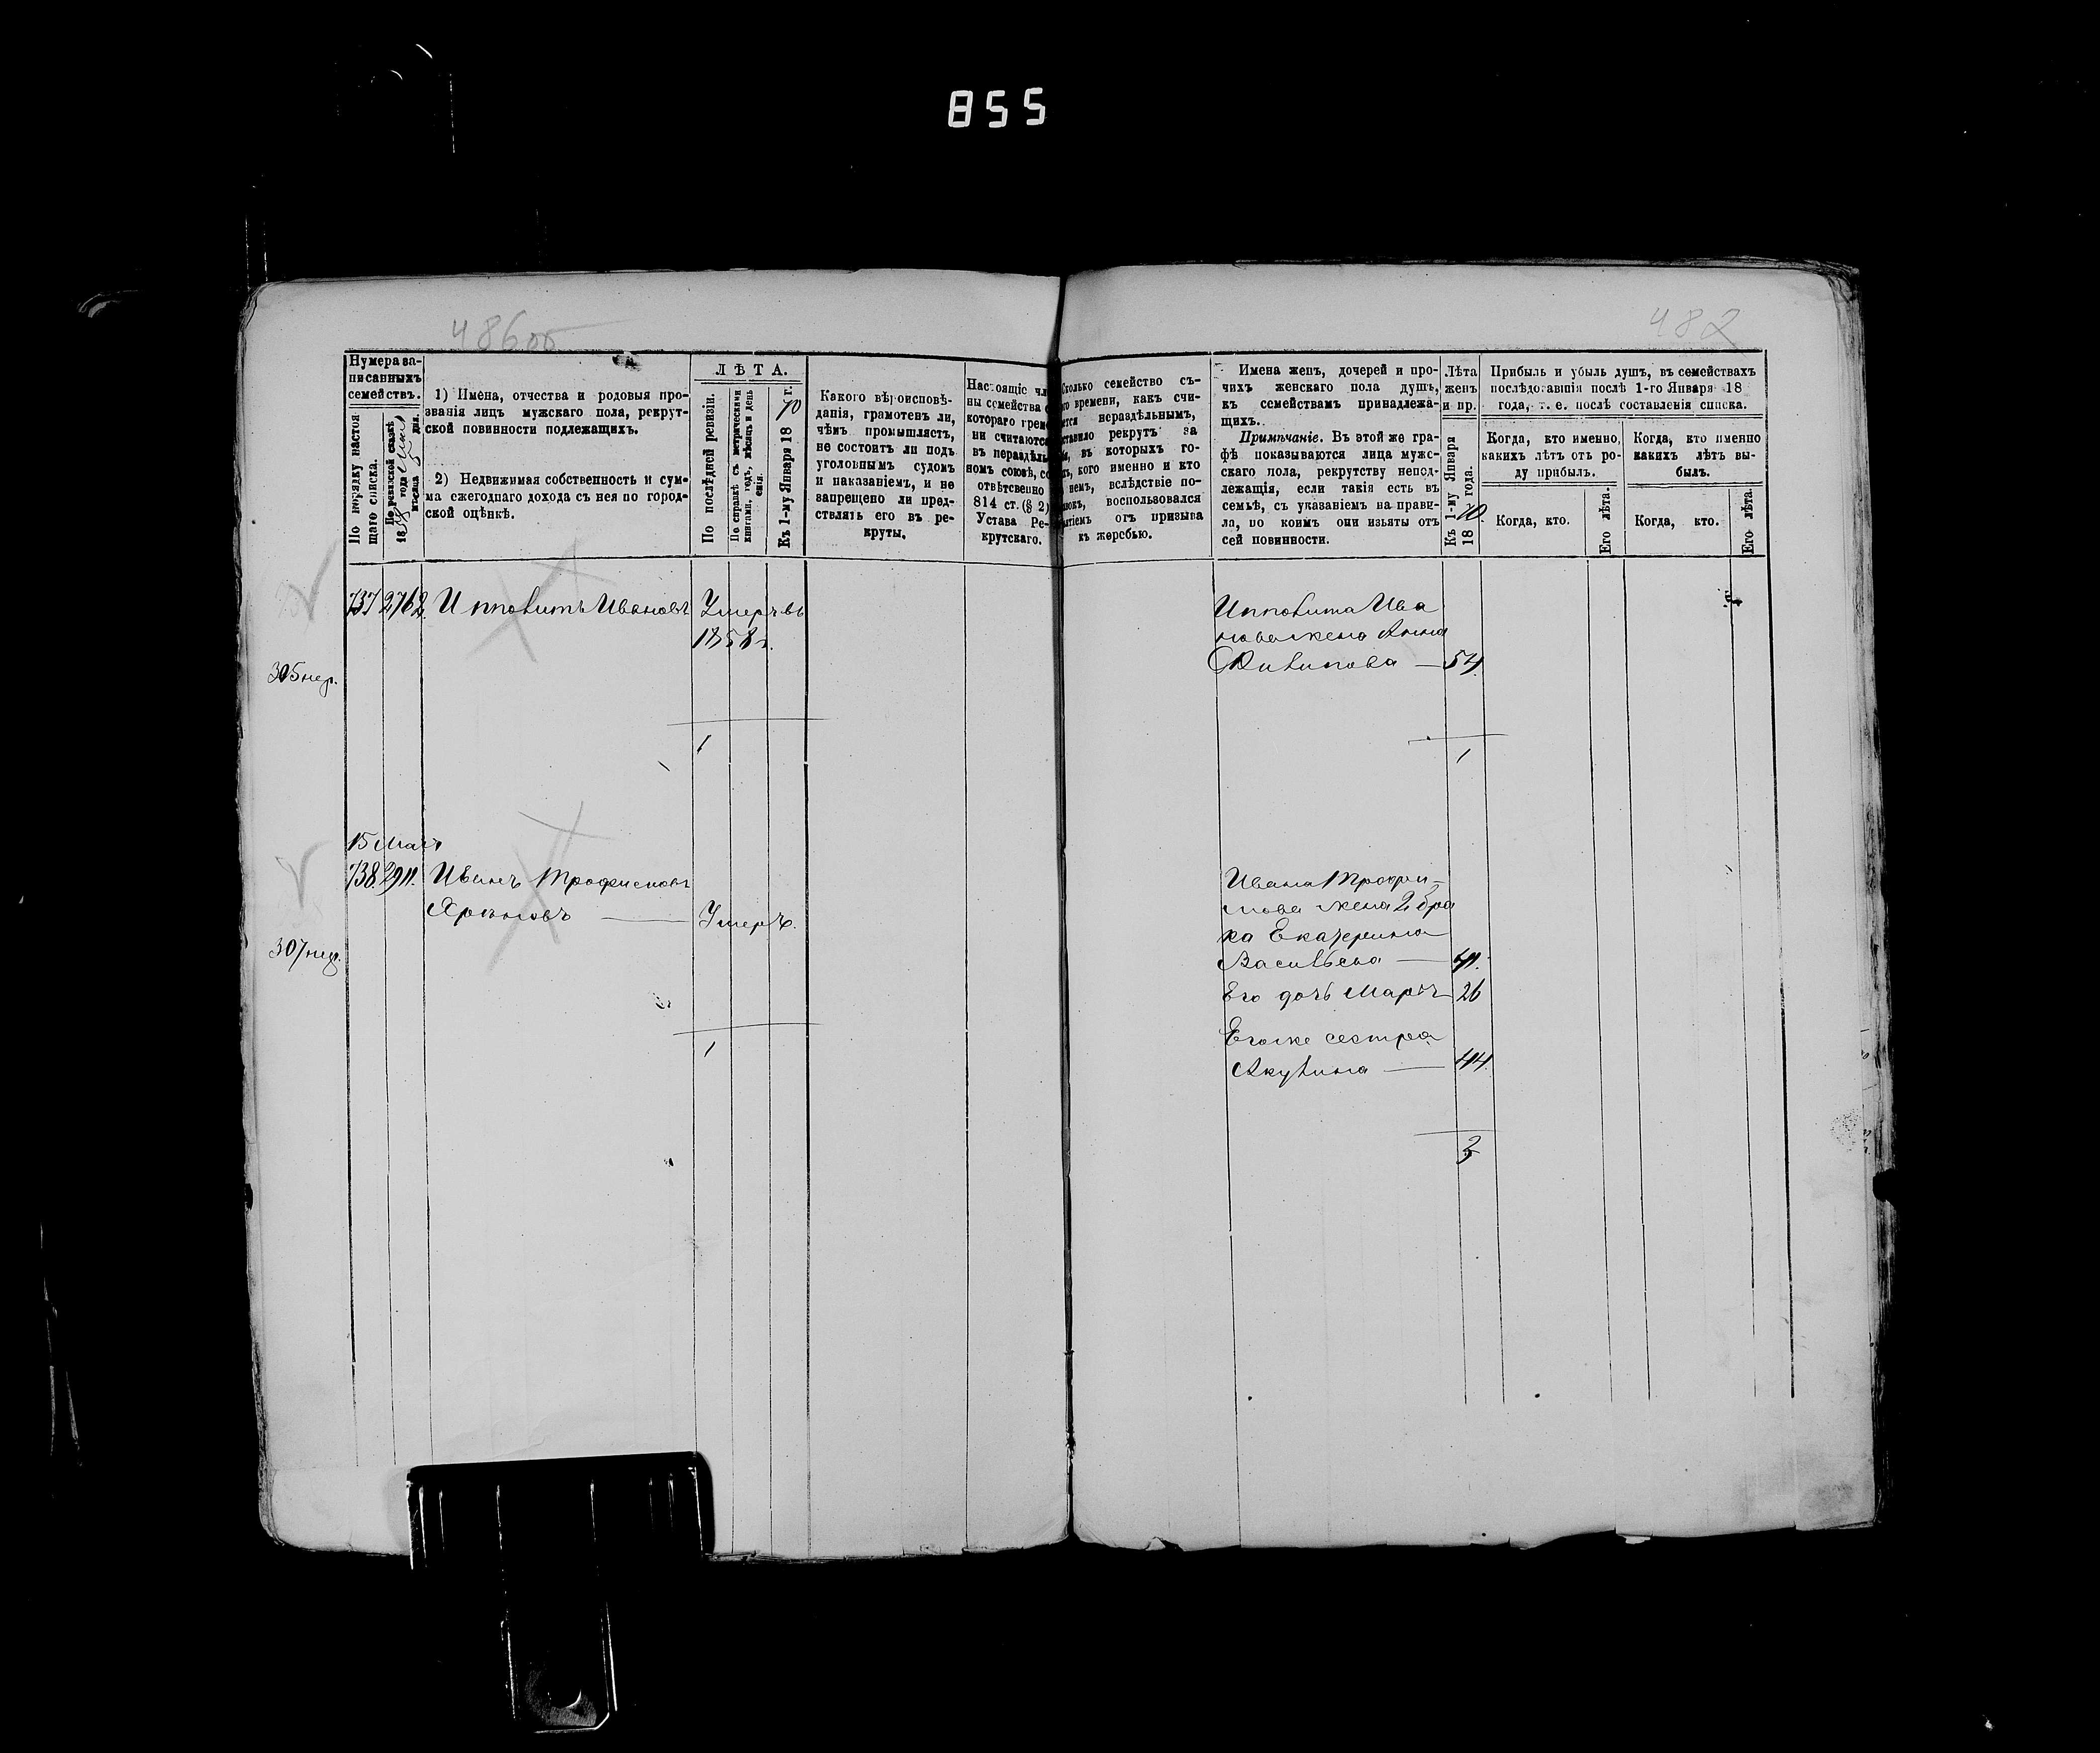 855
482
Нумера за-
писанныхъ
семействъ.
По порядку настоя
щаго списка.
По ревизской сказкѣ
1858 года
мѣсяца 5 дня.
1) Имена, отчества и родовыя про-
званія лицъ мужскаго пола, рекрут-
ской повинности подлежащихъ.
2) Недвижимая собственность и сум-
ма ежегоднаго дохода съ нея по город-
ской оцѣнкѣ.
ЛѢТА.
По послѣдней ревизіи.
По справкѣ съ метрическими
книгами, годъ, мѣсяцъ и день
Къ 1-му Января 1870 г.
Какого вѣроисповѣ-
данія, грамотенъ ли,
чѣмъ промышляетъ,
не состоитъ ли подъ
уголовнымъ судомъ
и наказаніемъ, и не
запрещено ли пред-
ствлять его въ ре-
круты.
Настоящіе чл
ны семейства
котораго врем
ни считаются
въ нераздѣль
номъ союзѣ, со
отвѣтсвенно
814 ст. (§ 2)
Устава Ре-
крутскаго.
Сколько семейство съ-
го времени, какъ счи-
тся нераздѣльнымъ,
ставило рекрутъ за
въ которыхъ го-
хъ, кого именно и кто
немъ, вслѣдствіе по-
воспользовался
отъ призыва
къ жеребью.
Имена женъ, дочерей и про-
чихъ женскаго пола душъ,
къ семействамъ принадлежа-
щихъ.
Примѣчаніе. Въ этой же гра-
фѣ показываются лица мужс-
скаго пола, рекрутству непод-
лежащія, если такія есть въ
семьѣ, съ указаніемъ на прави-
ла, по коимъ они изъяты отъ
сей повинности.
Лѣта
женъ
и пр.
Къ 1-му Января
1870 года.
Прибыль и убыль душъ, въ семействахъ
послѣдовавшія послѣ 1-го Января 18
года, т. е. послѣ составленія списка.
Когда, кто именно,
какихъ лѣтъ отъ ро-
ду прибылъ.
Когда, кто именно
какихъ лѣтъ вы-
былъ.
Когда, кто.
Его лѣта.
Когда, кто.
Его лѣта.
737 2762 Ипполитъ Ивановъ Умеръ въ
1858 г.
305 нер.
1
Ипполита Ива
нова жена Анна
Филипова — 54
1
15 Мая
738. 2911. Иванъ Трофимовъ
Умеръ.
307 нер.
1
Ивана Трофи-
мова жена 2 бра
ка Екатерина
Васильева — 41.
Его дочь Марья 26
Его же сестра
Акулина — 44.
3